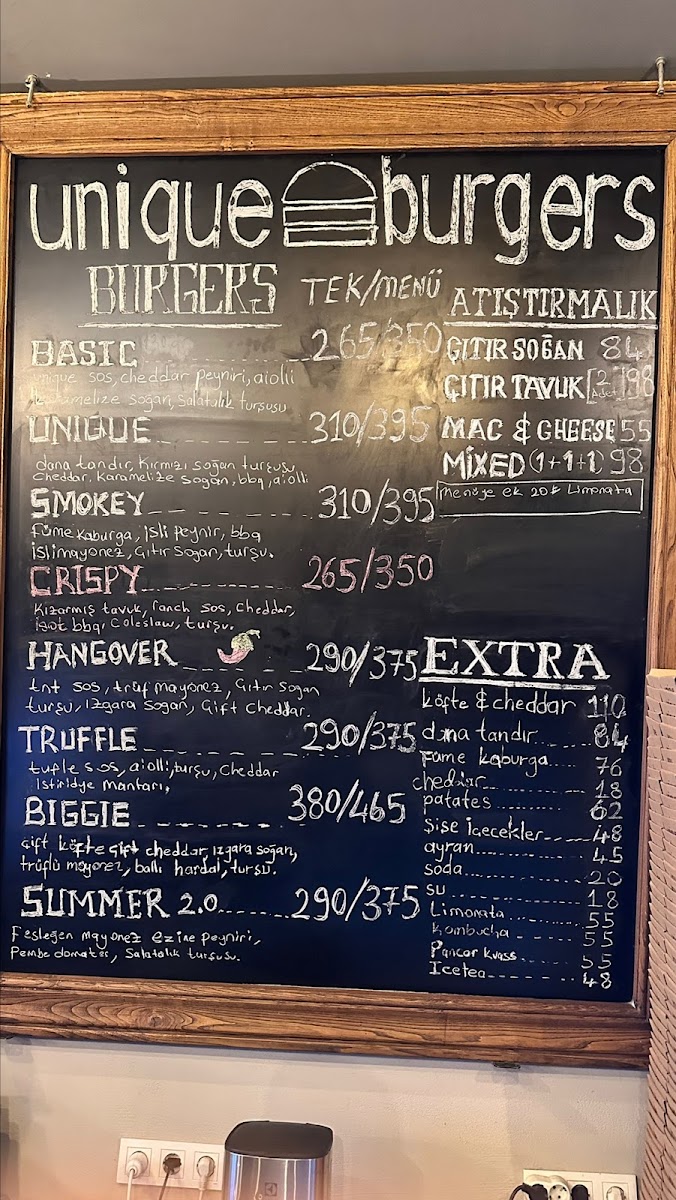 unique burgers
BURGERS TEK/MENÜ
BASIC 265/350
unique sos, cheddar peyniri, aioli
karamelize soğan, salatalık turşusu
UNIQUE 310/395
dana tandır, kırmızı soğan turşusu
cheddar, karamelize soğan, bbq, aioli
SMOKEY 310/395
füme kaburga, isli peynir, bbq
islimayonez, Çıtır soğan, turşu.
CRISPY 265/350
Kızarmış tavuk, ranch sos, cheddar,
isot bbq, coleslaw, turşu.
HANGOVER 290/375
tnt sos, trüf mayonez, Çıtır soğan
turşu, ızgara soğan, Çift cheddar.
TRUFFLE 290/375
tufle sos, aioli, turşu, cheddar
istiridye mantarı,
BIGGIE 380/465
Çift köfte Çift cheddar, ızgara soğan,
trüflü mayonez, ballı hardal, turşu.
SUMMER 2.0 290/375
Fesleğen mayonez ezine peyniri,
Pembe domates, Salatalık turşusu.
ATIŞTIRMALIK
ÇITIR SOĞAN 84
ÇITIR TAVUK [2 Adet] 98
MAC & CHEESE 55
MİXED (1+1+1) 98
menüye ek 20₺ Limonata
EXTRA
köfte & cheddar 110
dana tandır 84
füme kaburga 76
cheddar 18
patates 62
şişe içecekler 48
ayran 45
soda 20
su 18
Limonata 55
Kombucha 55
Pancar kvass 55
Icetea 48